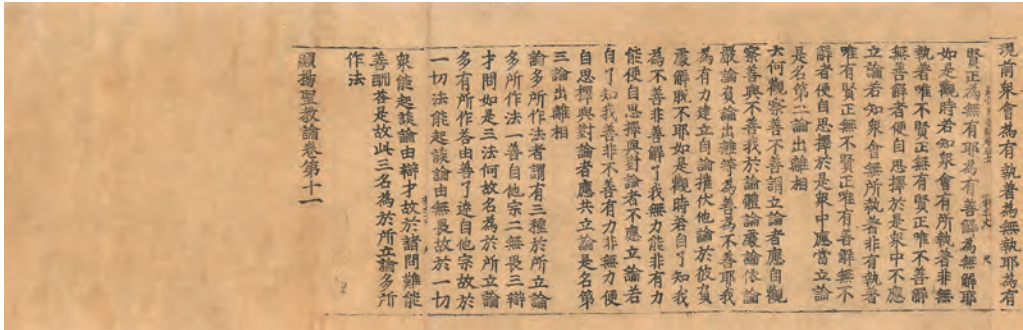 現前衆會為有執著為無執耶為有
賢正為無有耶為有善解為無解耶
如是觀時若知衆會有所執著非無
執著唯不賢正無有賢正唯不善解
無善解者便自思擇於是衆中不應
立論若知衆會無所執著非有執著
唯有賢正無不賢正唯有善解無不
解者便自思擇於是衆中應當立論
是名第二論出離相
云何觀察善不善謂立論者應自觀
察善與不善我於論體論處論依論
嚴論負論出離等為善為不善耶我
為有力建立自論摧伏他論於彼負
處解脫不耶如是觀時若自了知我
為不善非善解了我無力能非有力
能便自思擇與對論者不應立論若
自了知我善非不善有力非無力便
自思擇與對論者應共立論是名第
三論出離相
論多所作法者謂有三種於所立論
多所作法一善自他宗二無畏三辯
才問如是三法何故名為於所立論
多有所作荅由善了達自他宗故於
一切法能起談論由無畏故於一切
衆能起談論由辯才故於諸問難能
善酬荅是故此三名為於所立論多所
作法
顯揚聖教論卷第十一